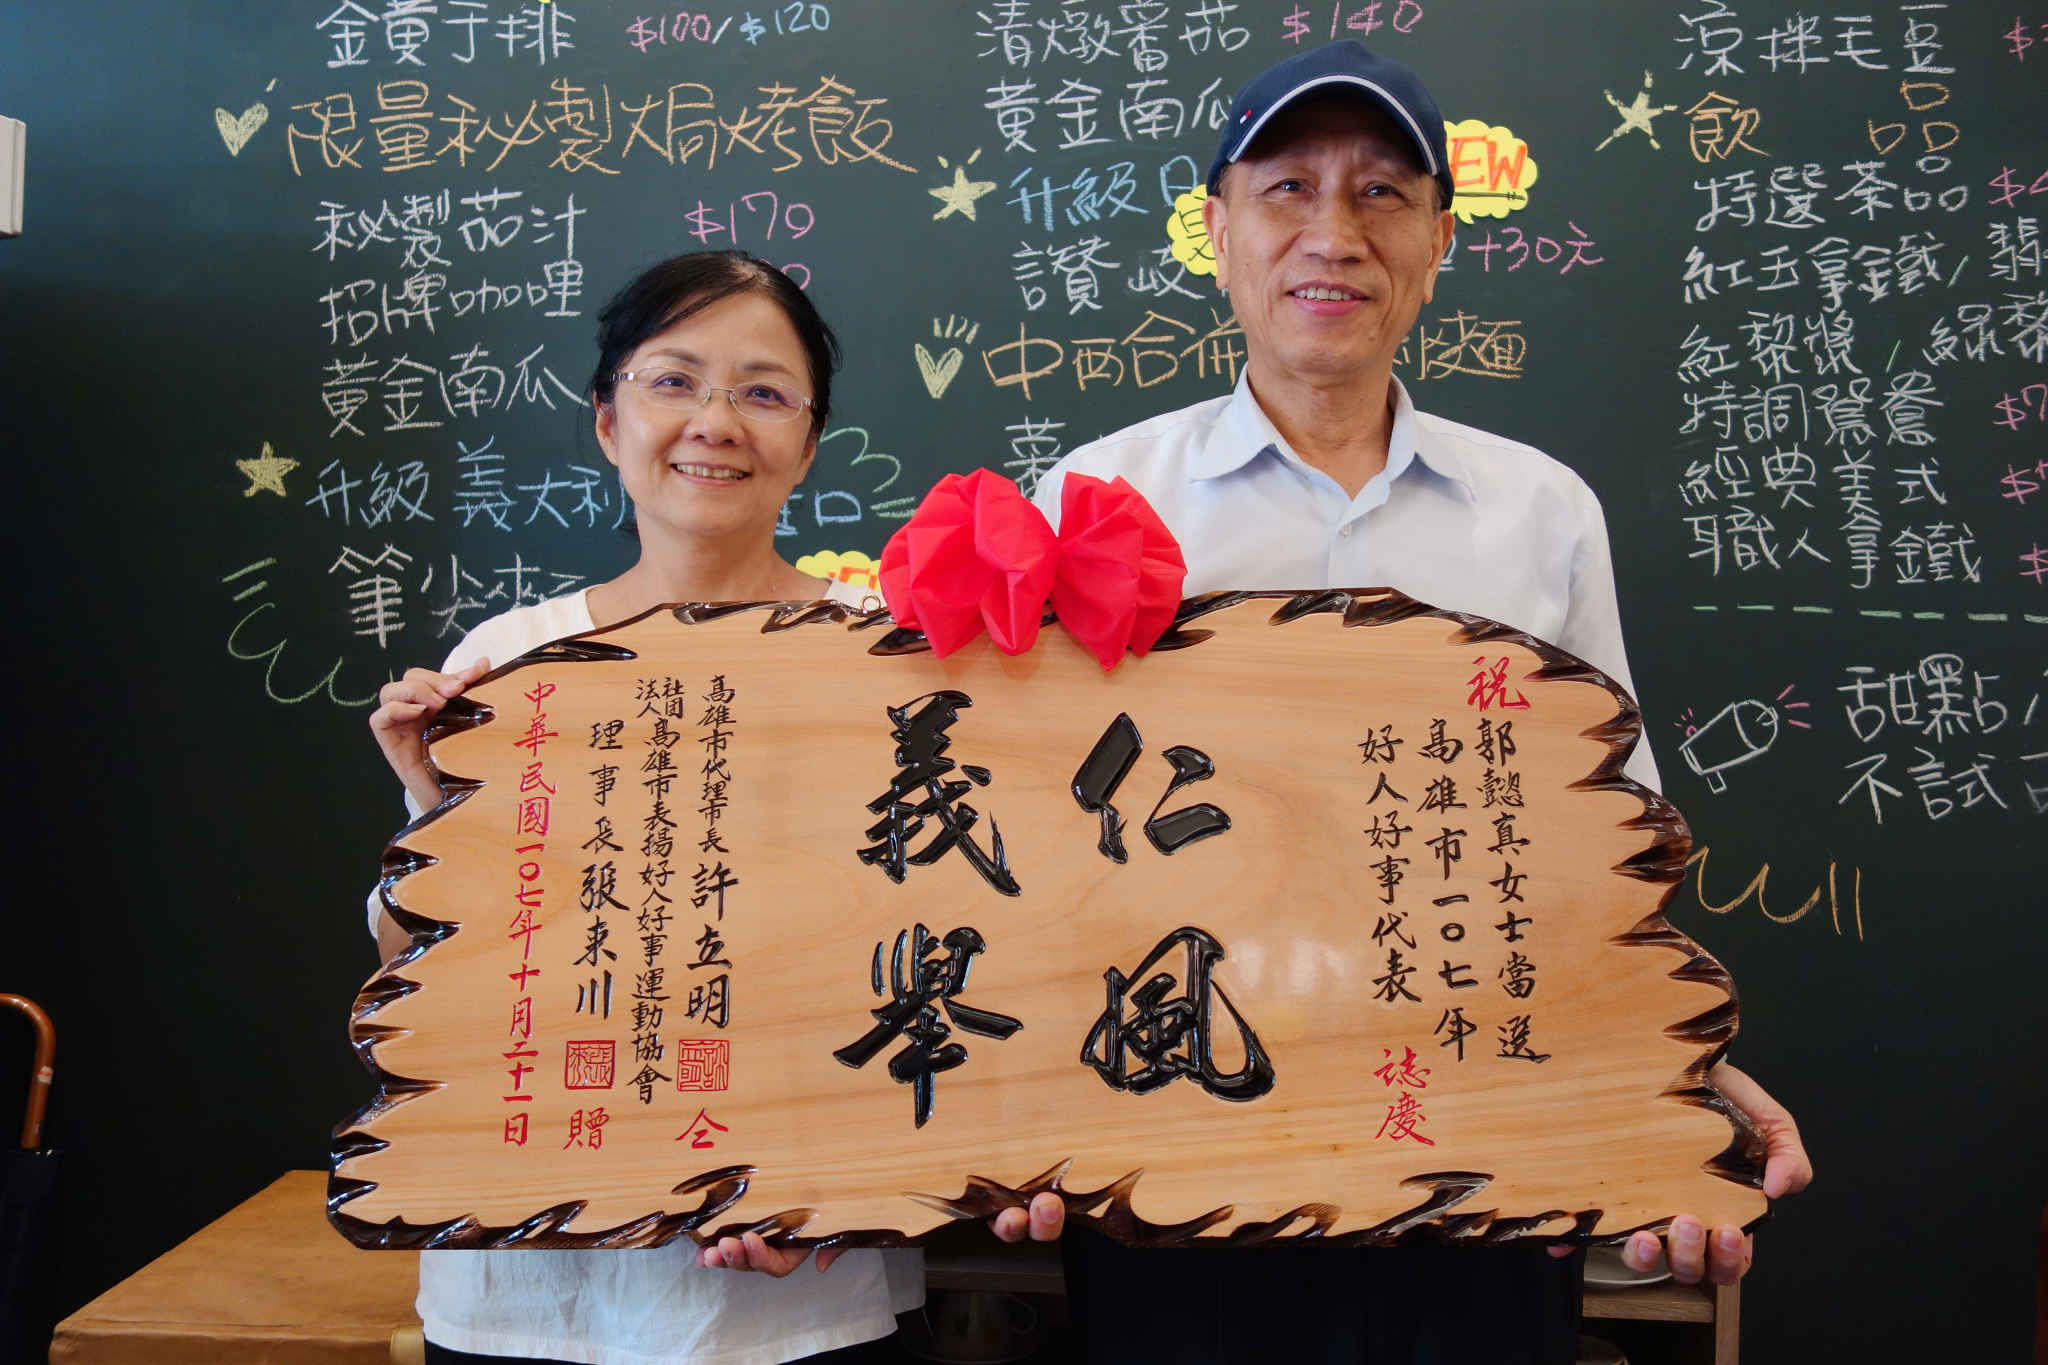 金黃于排 $100/$120
限量秘製焗烤飯
秘製茄汁 $170
招牌咖哩
黃金南瓜
升級義大利
筆尖
清燉番茄 $140
黃金南瓜
升級日
讚岐
+30元
NEW
中西合併
涼拌毛豆
飲品
特選茶品
紅玉拿鐵/翡
紅藜漿/綠藜
特調鴛鴦
經典美式
職人拿鐵
甜點
不試
祝
郭懿真女士當選
高雄市一〇七年
好人好事代表
誌慶
仁風
義舉
高雄市代理市長 許立明
社團法人高雄市表揚好人好事運動協會
理事長 張來川
仝
贈
中華民國一〇七年十月二十一日